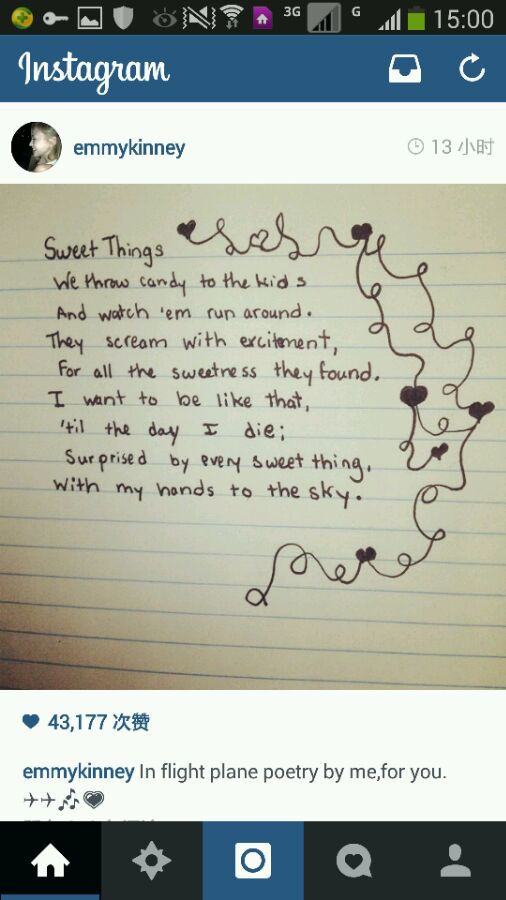 3G
G
15:00
Instagram
emmykinney
13 小时
Sweet Things
We throw candy to the kids
And watch 'em run around.
They scream with excitement,
For all the sweetness they found.
I want to be like that,
'til the day I die;
Surprised by every sweet thing.
With my hands to the sky.
43,177 次赞
emmykinney In flight plane poetry by me,for you.